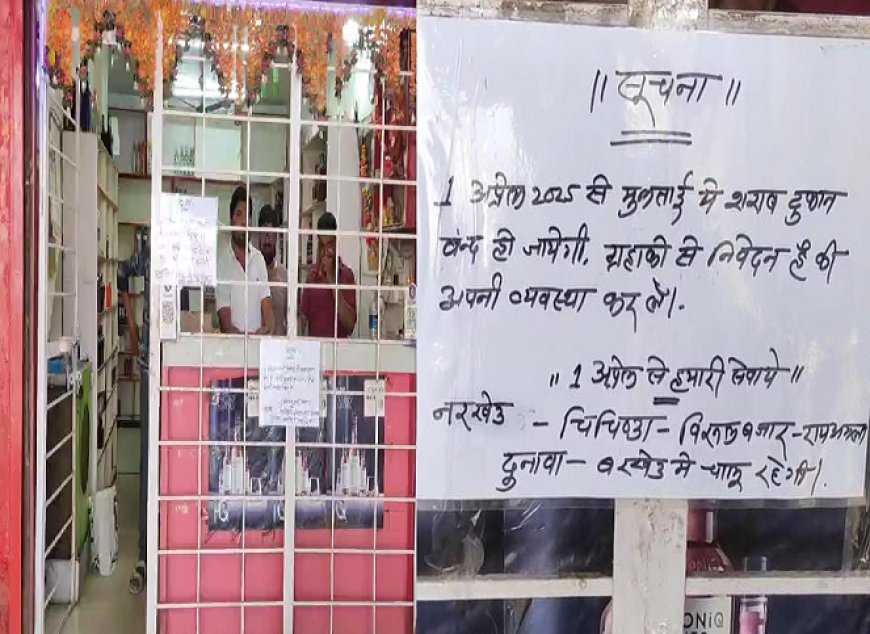 ॥ सूचना ॥
1 अप्रेल 2025 से मुलताई मे शराब दुकान
बंन्द हो जायेगी. ग्रहाको से निवेदन है की
अपनी व्यवस्था कर ले।.
॥ 1 अप्रेल से हमारी सेवाये ॥
नरखेड - चिचिण्डा - बिरूल बजार - रायआमला
दुनावा - बरखेड मे चालू रहेगी।.
ONiQ
iQ
iQ